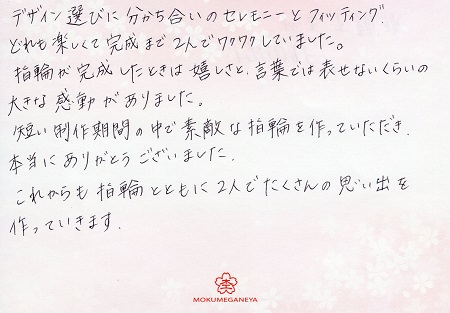 デザイン選びに分かち合いのセレモニーとフィッティング.
どれも楽しくて完成まで2人でワクワクしていました。
指輪が完成したときは嬉しさと、言葉では表せないくらいの
大きな感動がありました。
短い制作期間の中で素敵な指輪を作っていただき.
本当にありがとうございました.
これからも指輪とともに2人でたくさんの思い出を
作っていきます.
MOKUMEGANEYA